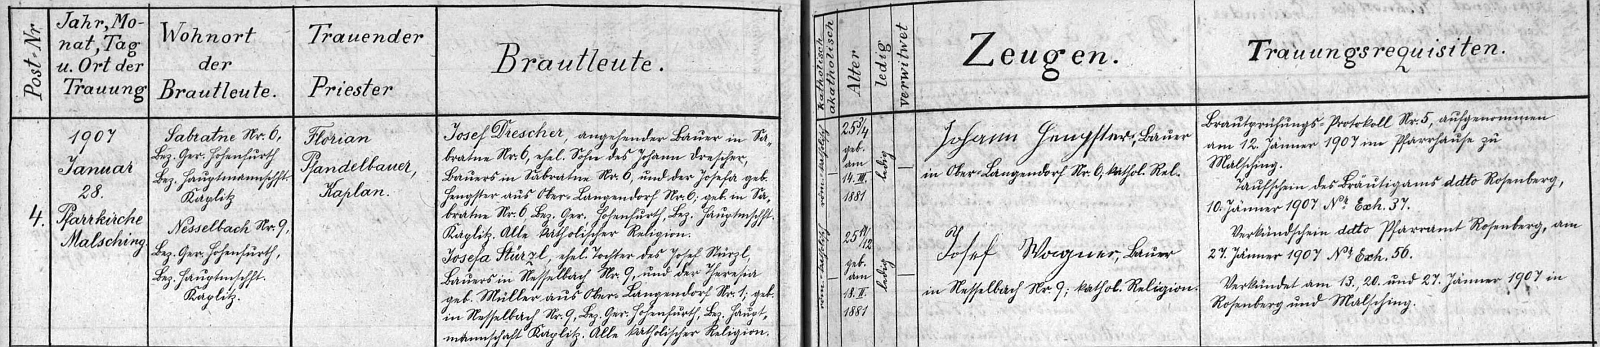 Post-Nr
Jahr, Mo-
nat, Tag
u. Ort der
Trauung
Wohnort
der
Brautleute.
Trauender
Priester
Brautleute.
katholisch
akatholisch
Alter
ledig
verwitwet
Zeugen.
Trauungsrequisiten.
4.
1907
Januar
28.
Pfarrkirche
Malsching.
Sabratne Nr. 6,
Bez. Ger. Hohenfurth
Bez. Hauptmannschft.
Kaplitz
Nesselbach Nr. 9,
Bez. Ger. Hohenfurth,
Bez. Hauptmschft.
Kaplitz.
Florian
Pfandelbauer,
Kaplan.
Josef Drescher, angehender Bauer in Sa-
bratne Nr. 6, ehel. Sohn des Johann Drescher,
Bauers in Sabratne Nr. 6, und der Josefa geb.
Hengster aus Ober-Langendorf Nr. 6; geb. in Sa-
bratne Nr. 6 Bez. Ger. Hohenfurth, Bez. Hauptmschft.
Kaplitz. Alle katholischer Religion.
Josefa Stürzl, ehel. Tochter des Josef Stürzl,
Bauers in Nesselbach Nr. 9, und der Theresia
geb. Müller aus Ober-Langendorf Nr. 1; geb.
in Nesselbach Nr. 9, Bez. Ger. Hohenfurth, Bez. Haupt-
mannschaft Kaplitz. Alle katholischer Religion.
25 3/4
geb.
am
14. III.
1881
ledig
25 11/12
geb.
am
18. II.
1881
ledig
Johann Hengster, Bauer
in Ober-Langendorf Nr. 6, kathol. Rel.
Josef Wagner, Bauer
in Nesselbach Nr. 9; kathol. Religion.
Brautprüfungs-Protokoll Nr. 5, aufgenommen
am 12. Jänner 1907 im Pfarrhause zu
Malsching.
Taufschein des Bräutigams ddto Rosenberg,
10. Jänner 1907 Nr. Exh. 37.
Verkündschein ddto Pfarramt Rosenberg, am
27. Jänner 1907 Nr. Exh. 56.
Verkündet am 13. 20. und 27. Jänner 1907 in
Rosenberg und Malsching.